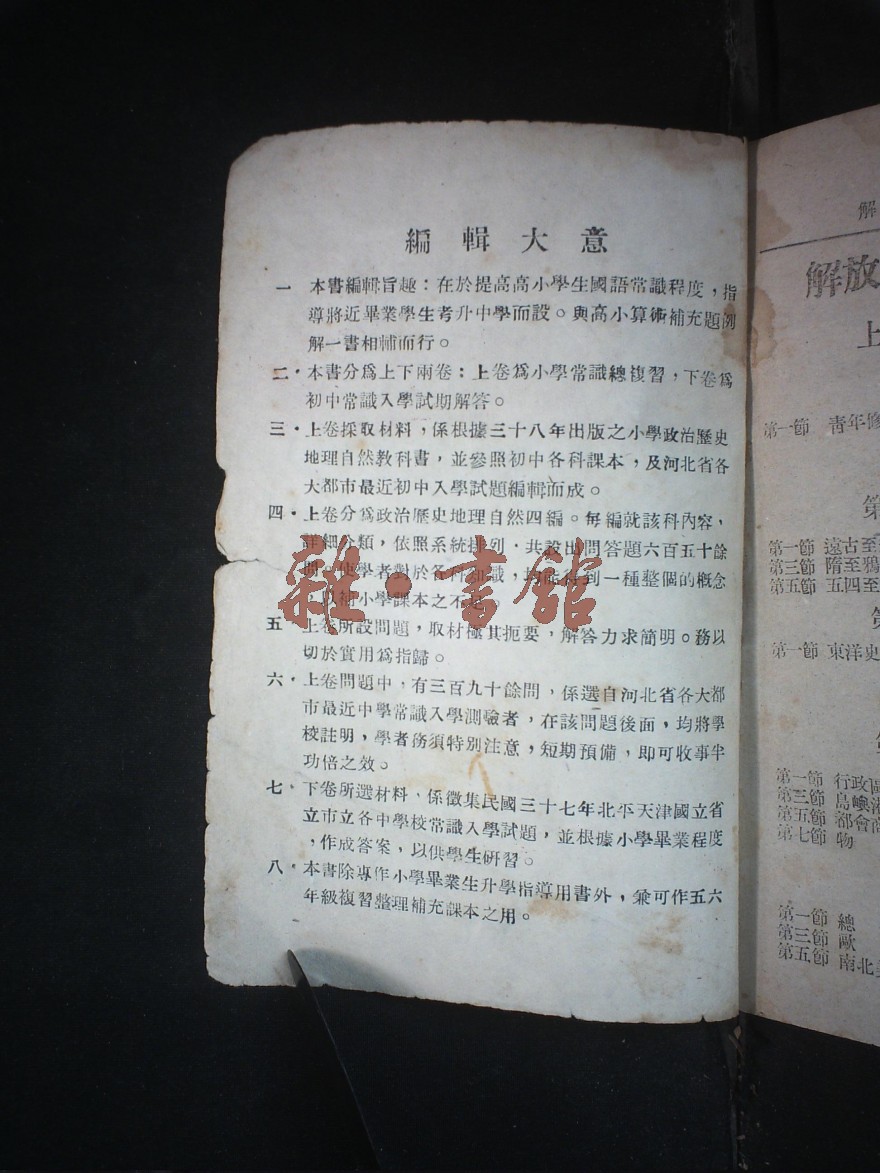 編輯大意
一 本書編輯旨趣：在於提高高小學生國語常識程度，指
導將近畢業學生考升中學而設。與高小算術補充題例
解一書相輔而行。
二・本書分爲上下兩卷：上卷爲小學常識總複習，下卷爲
初中常識入學試期解答。
三・上卷採取材料，係根據三十八年出版之小學政治歷史
地理自然教科書，並參照初中各科課本，及河北省各
大都市最近初中入學試題編輯而成。
四・上卷分爲政治歷史地理自然四編。每編就該科內容，
詳細分類，依照系統排列・共設出問答題六百五十餘
問。使學者對於各科知識，均能得到一種整個的概念
，以補小學課本之不足。
五 上卷所設問題，取材極其扼要，解答力求簡明。務以
切於實用爲指歸。
六・上卷問題中，有三百九十餘問，係選自河北省各大都
市最近中學常識入學測驗者，在該問題後面，均將學
校註明，學者務須特別注意，短期預備，即可收事半
功倍之效。
七・下卷所選材料，係徵集民國三十七年北平天津國立省
立市立各中學校常識入學試題，並根據小學畢業程度
，作成答案，以供學生研習。
八・本書除專作小學畢業生升學指導用書外，兼可作五六
年級複習整理補充課本之用。
雜・書館
解
解放
上
第一節 青年修
第
第一節 遠古至
第三節 隋至鴉
第五節 五四至
第
第一節 東洋史
第
第一節 行政區
第三節 島嶼港
第五節 都會商
第七節 物
第一節 總
第三節 歐
第五節 南北美